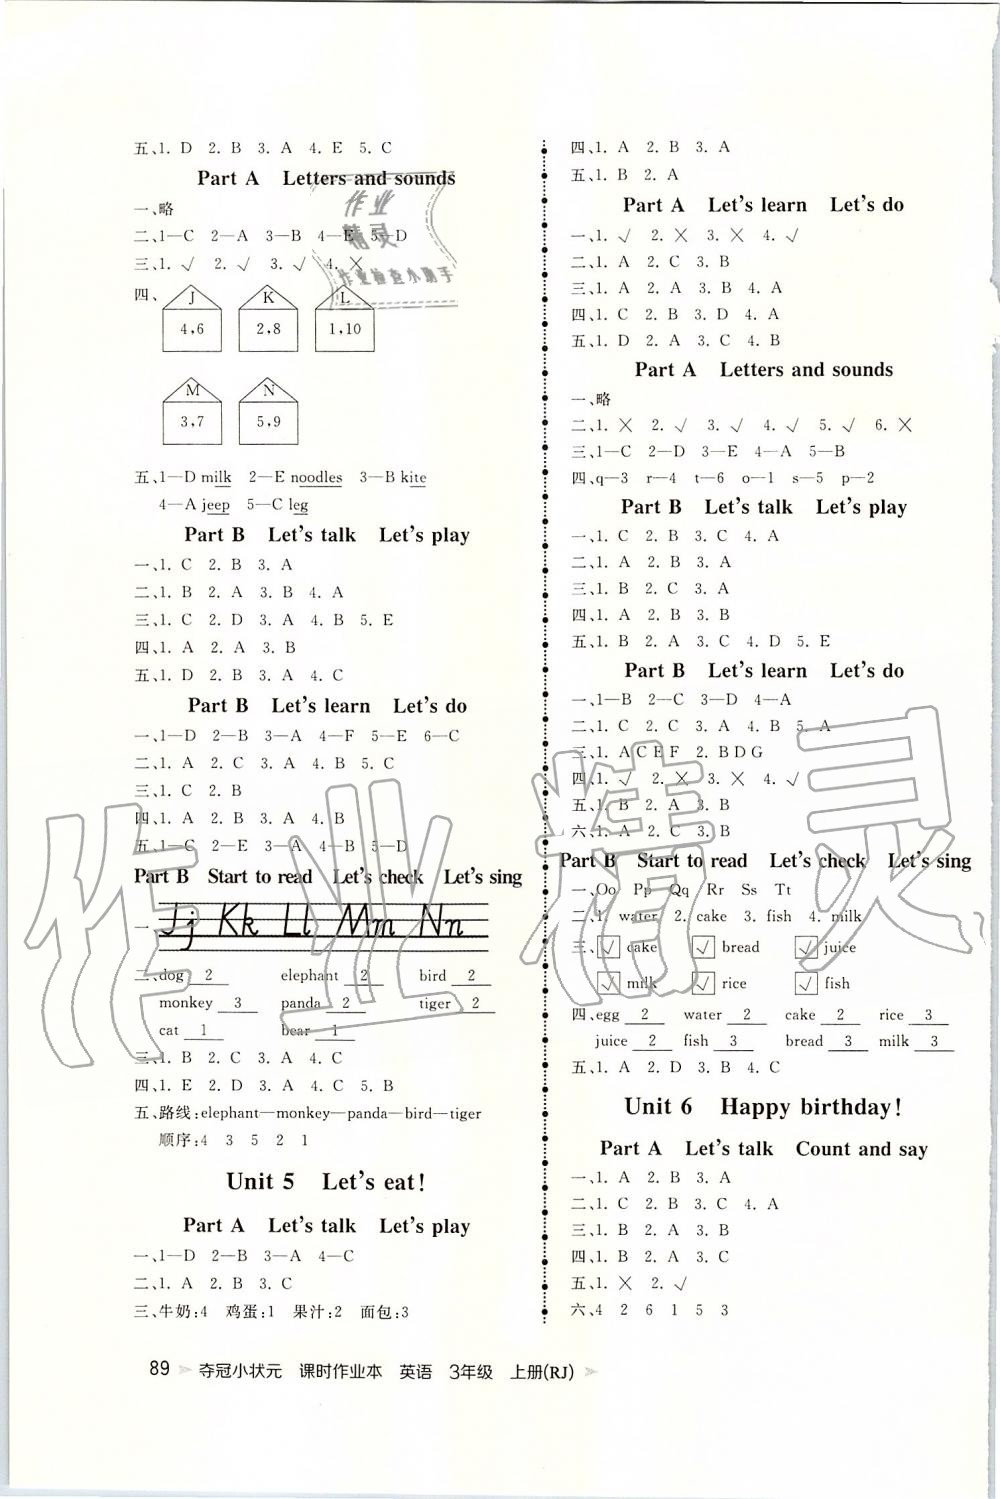 五、1. D 2. B 3. A 4. E 5. C
Part A Letters and sounds
一、略
二、1—C 2—A 3—B 4—E 5—D
三、1. √ 2. √ 3. √ 4. ×
四、
J K L
4,6 2,8 1,10
M N
3,7 5,9
五、1—D milk 2—E noodles 3—B kite
4—A jeep 5—C leg
Part B Let's talk Let's play
一、1. C 2. B 3. A
二、1. B 2. A 3. B 4. A
三、1. C 2. D 3. A 4. B 5. E
四、1. A 2. A 3. B
五、1. D 2. B 3. A 4. C
Part B Let's learn Let's do
一、1—D 2—B 3—A 4—F 5—E 6—C
二、1. A 2. C 3. A 4. B 5. C
三、1. C 2. B
四、1. A 2. B 3. A 4. B
五、1—C 2—E 3—A 4—B 5—D
Part B Start to read Let's check Let's sing
一、Jj Kk Ll Mm Nn
二、dog 2 elephant 2 bird 2
monkey 3 panda 2 tiger 2
cat 1 bear 1
三、1. B 2. C 3. A 4. C
四、1. E 2. D 3. A 4. C 5. B
五、路线:elephant—monkey—panda—bird—tiger
顺序:4 3 5 2 1
Unit 5 Let's eat!
Part A Let's talk Let's play
一、1—D 2—B 3—A 4—C
二、1. A 2. B 3. C
三、牛奶:4 鸡蛋:1 果汁:2 面包:3
四、1. A 2. B 3. A
五、1. B 2. A
Part A Let's learn Let's do
一、1. √ 2. × 3. × 4. √
二、1. A 2. C 3. B
三、1. A 2. A 3. B 4. A
四、1. C 2. B 3. D 4. A
五、1. D 2. A 3. C 4. B
Part A Letters and sounds
一、略
二、1. × 2. √ 3. √ 4. √ 5. √ 6. ×
三、1—C 2—D 3—E 4—A 5—B
四、q—3 r—4 t—6 o—1 s—5 p—2
Part B Let's talk Let's play
一、1. C 2. B 3. C 4. A
二、1. A 2. B 3. A
三、1. B 2. C 3. A
四、1. A 2. B 3. B
五、1. B 2. A 3. C 4. D 5. E
Part B Let's learn Let's do
一、1—B 2—C 3—D 4—A
二、1. C 2. C 3. A 4. B 5. A
三、1. A C E F 2. B D G
四、1. √ 2. × 3. × 4. √
五、1. B 2. A 3. B
六、1. A 2. C 3. B
Part B Start to read Let's check Let's sing
一、Oo Pp Qq Rr Ss Tt
二、1. water 2. cake 3. fish 4. milk
三、√ cake √ bread √ juice
√ milk √ rice √ fish
四、egg 2 water 2 cake 2 rice 3
juice 2 fish 3 bread 3 milk 3
五、1. A 2. D 3. B 4. C
Unit 6 Happy birthday!
Part A Let's talk Count and say
一、1. A 2. B 3. A
二、1. C 2. B 3. C 4. A
三、1. B 2. A 3. B
四、1. B 2. A 3. C
五、1. × 2. √
六、4 2 6 1 5 3
89 夺冠小状元 课时作业本 英语 3年级 上册(RJ)
作业
精灵
作业检查小助手
作业精灵